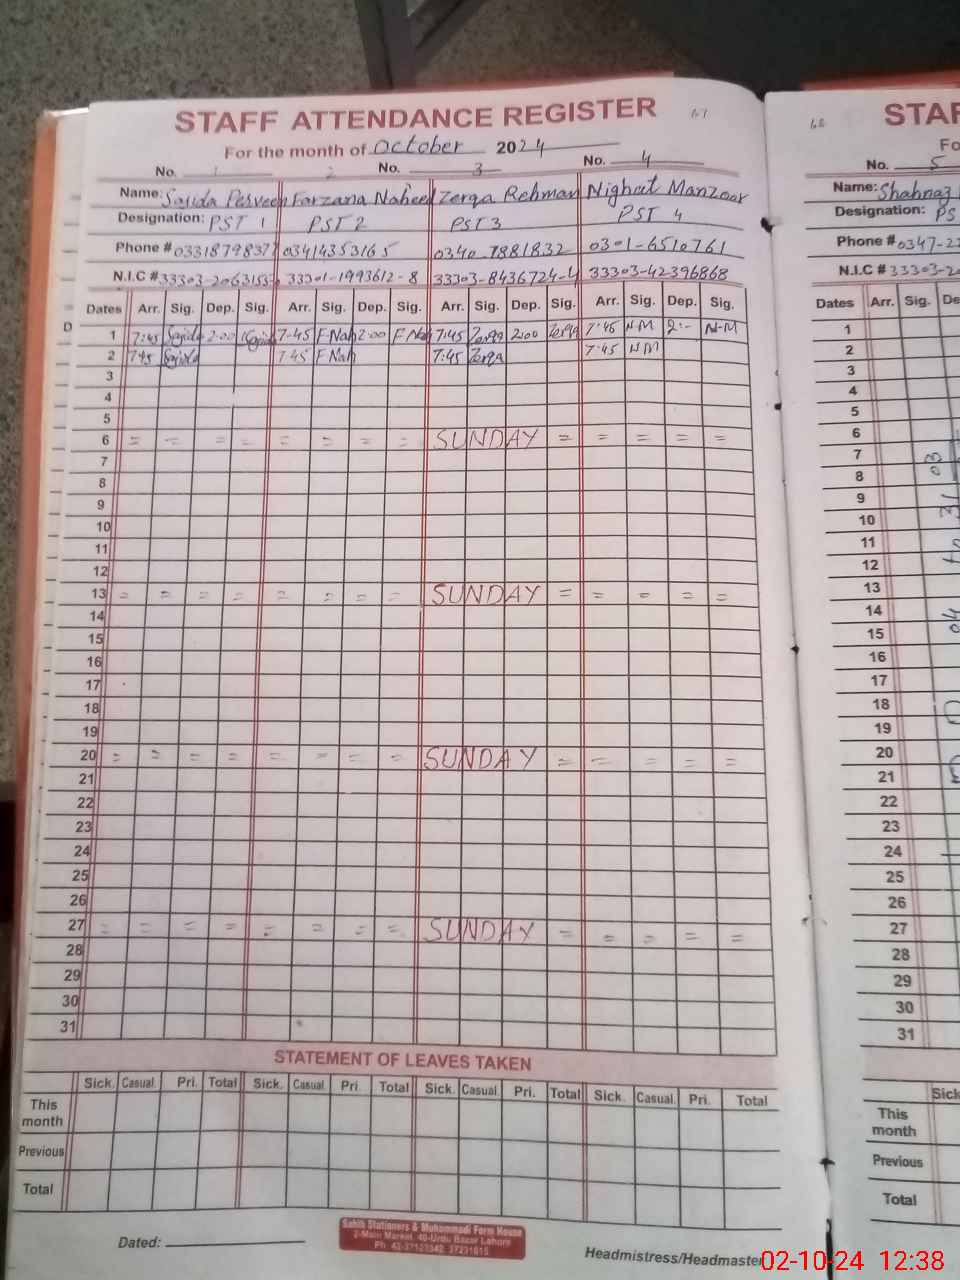 STAFF ATTENDANCE REGISTER 67
For the month of October 2024
No. 1 2 No. 3 No. 4
Name: Sajida Perveen Farzana Naheed Zerqa Rehman Nighat Manzoor
Designation: PST 1 PST 2 PST 3 PST 4
Phone # 0331879837 03414353165 0340-7881832 0301-6510761
N.I.C # 33303-2063153 33301-1993612-8 33303-8436724-4 33303-42396868
Dates Arr. Sig. Dep. Sig. Arr. Sig. Dep. Sig. Arr. Sig. Dep. Sig. Arr. Sig. Dep. Sig.
1 7:45 Sajida 2:00 Sajida 7-45 F-Nah 2:00 F Nah 7:45 Zerqa 2:00 Zerqa 7:45 N-M 2:- N-M
2 7:45 Sajida 7:45 F Nah 7:45 Zerqa 7:45 NM
3
4
5
6 = = = = = = = = SUNDAY = = = = =
7
8
9
10
11
12
13 = = = = = = = = SUNDAY = = = = =
14
15
16
17
18
19
20 = = = = = = = = SUNDAY = = = = =
21
22
23
24
25
26
27 = = = = = = = = SUNDAY = = = = =
28
29
30
31
STATEMENT OF LEAVES TAKEN
Sick. Casual. Pri. Total Sick. Casual. Pri. Total Sick. Casual. Pri. Total Sick. Casual. Pri. Total
This month
Previous
Total
Dated:
Sahib Stationers & Muhammadi Form House
2-Main Market, 40-Urdu Bazar Lahore
Headmistress/Headmaster
68
STAF
Fo
No. 5
Name: Shahnaz
Designation: PS
Phone # 0347-2
N.I.C # 33303-20
Dates Arr. Sig. De
1
2
3
4
5
6
7
8
9
10
11
12
13
14
15
16
17
18
19
20
21
22
23
24
25
26
27
28
29
30
31
Sick
This month
Previous
Total
02-10-24 12:38